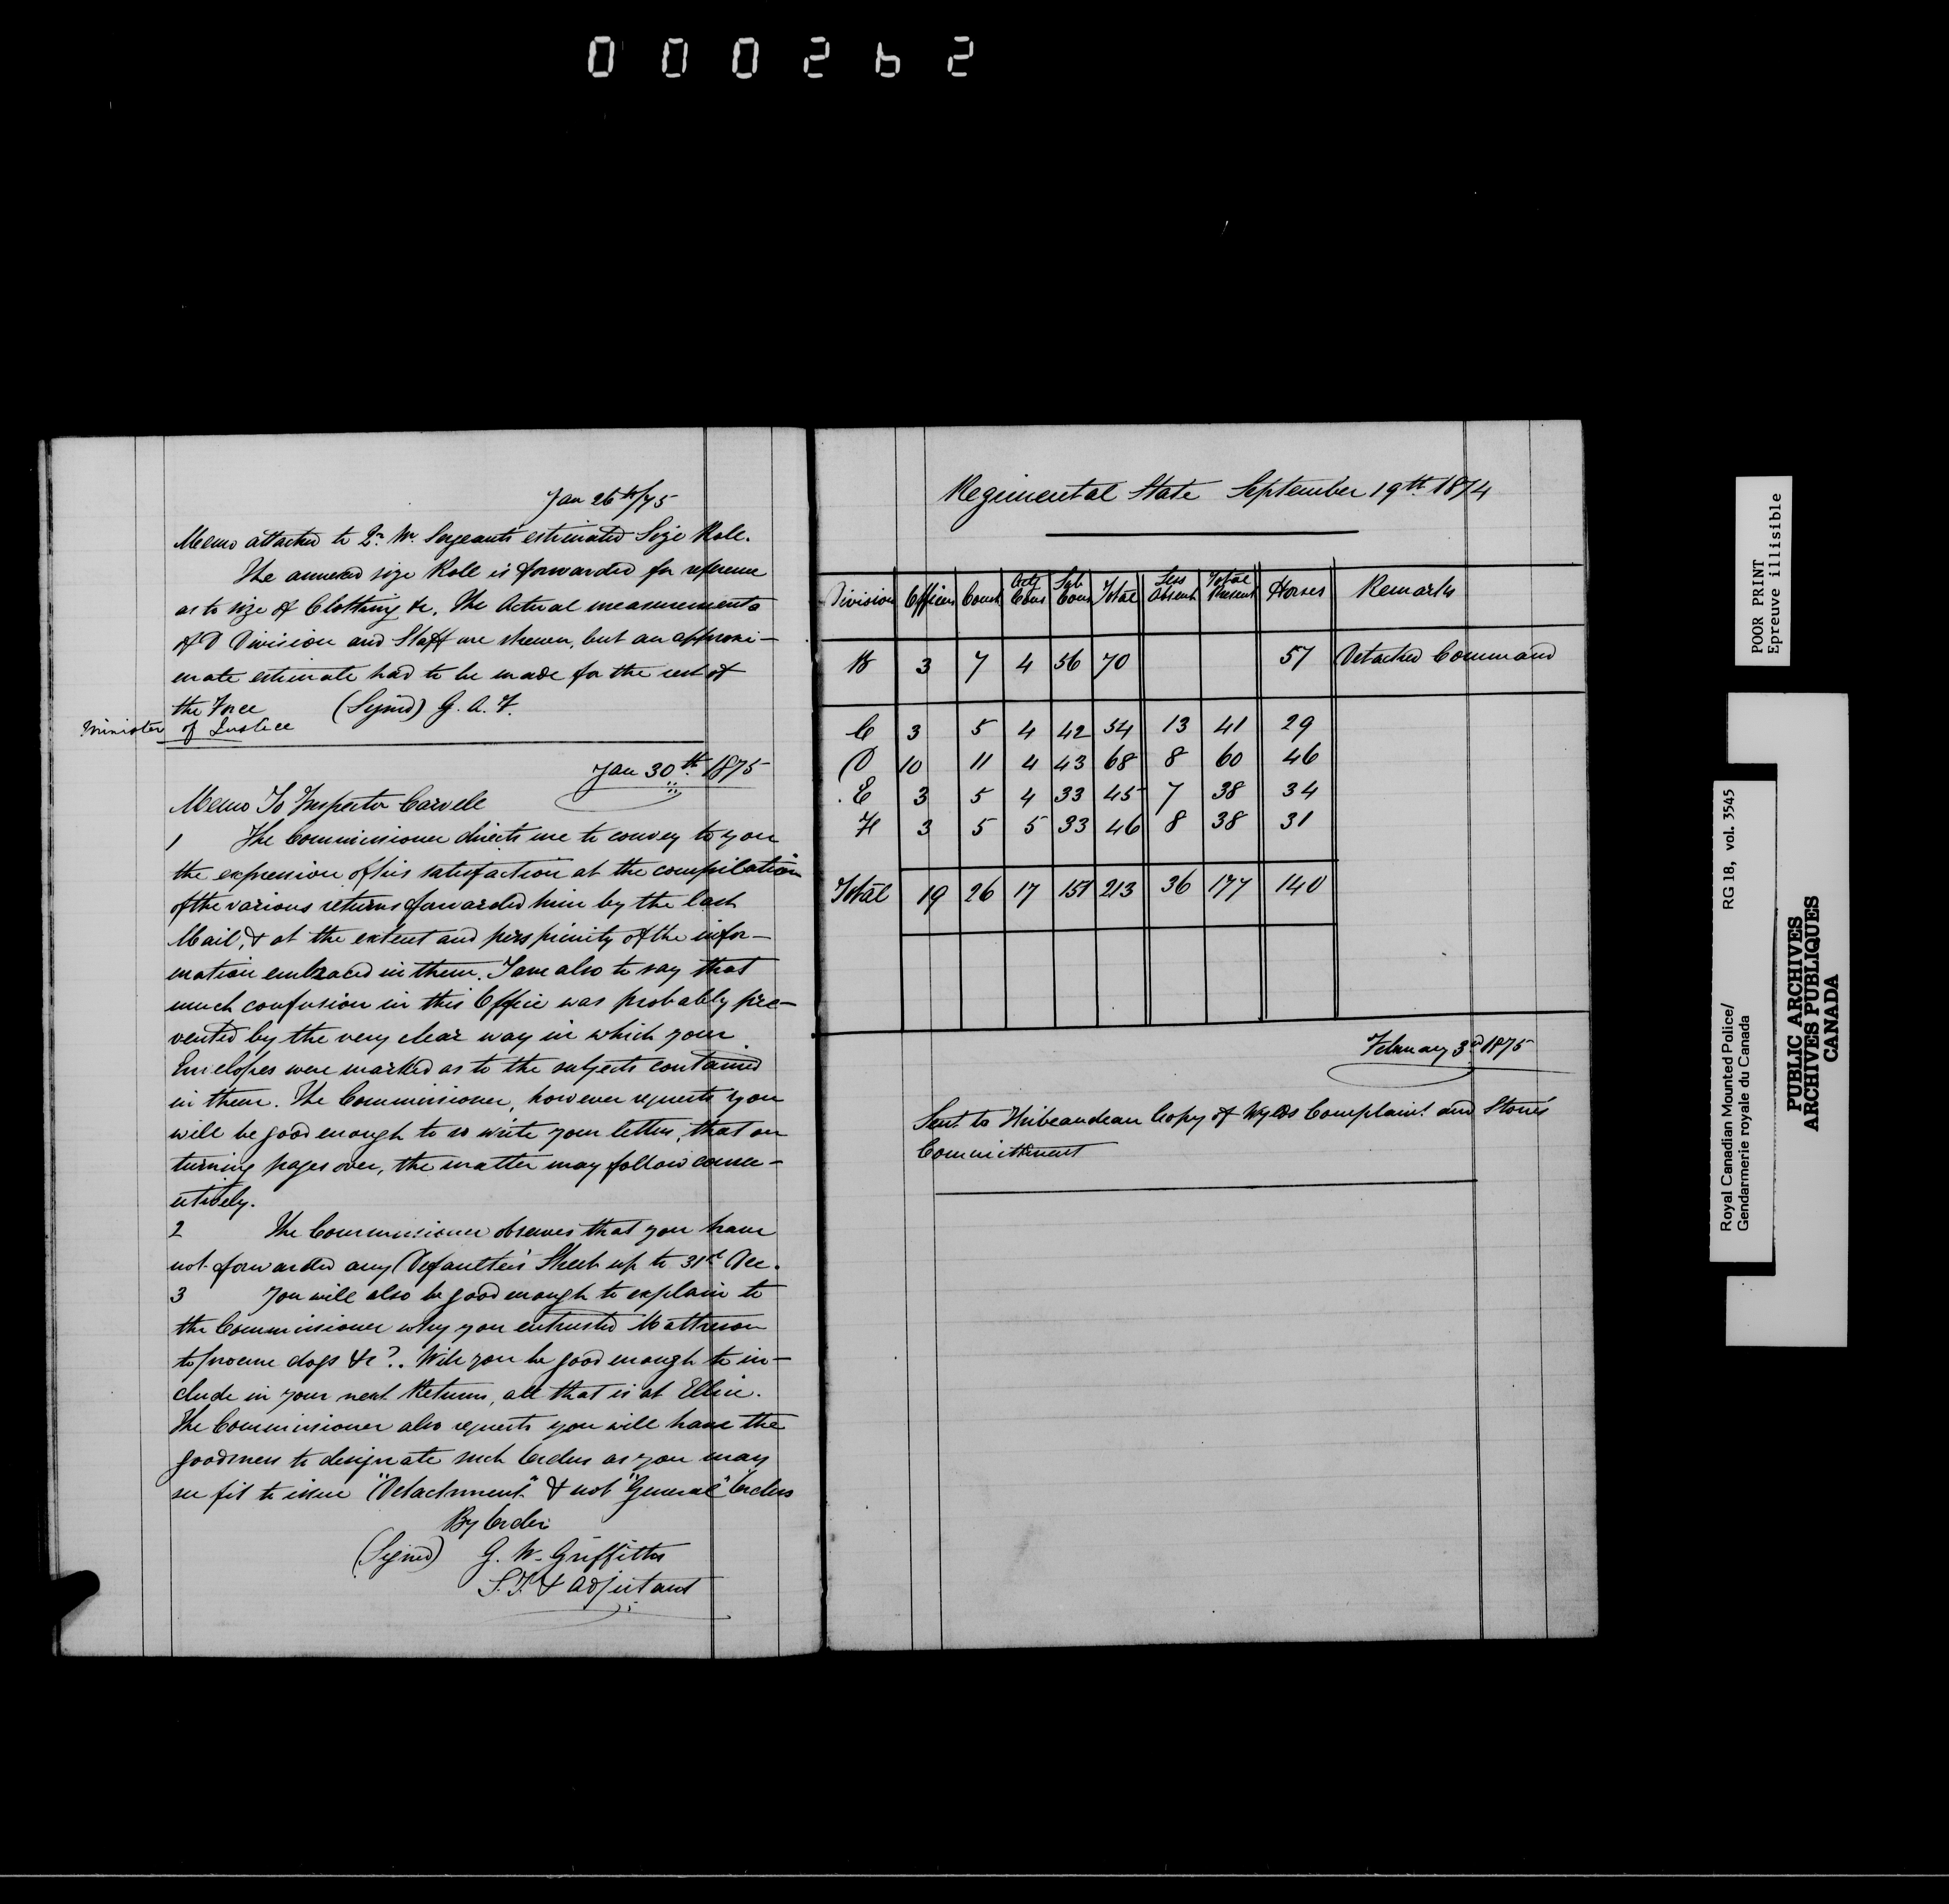 000262
Jan 26th/75
Memo attached to Qr. Mr. Sergeants estimated Size Role.
The annexed size Role is forwarded for reference
as to size of Clothing &c. The Actual measurements
of D Division and Staff are shewn, but an approxi-
mate estimate had to be made for the rest of
the Force (Signed) G. A. F.
Minister of Justice
Jan 30th 1875
Memo To Inspector Carvele
1 The Commissioner directs me to convey to you
the expression of his satisfaction at the compilation
of the various returns forwarded him by the last
Mail, & at the extent and perspicuity of the infor-
mation embraced in them. I am also to say that
much confusion in this Office was probably pre-
vented by the very clear way in which your
Envelopes were marked as to the subjects contained
in them. The Commissioner, however requests you
will be good enough to so write your letters, that on
turning pages over, the matter may follow conse-
cutively.
2 The Commissioner observes that you have
not forwarded any Defaulter's Sheet up to 31st Dec.
3 You will also be good enough to explain to
the Commissioner why you entrusted Mattheson
to procure dogs &c?.. Will you be good enough to in-
clude in your next Returns, all that is at Ellice.
The Commissioner also requests you will have the
goodness to designate such Orders as you may
see fit to issue "Detachment" & not "General" Orders
By Order
(Signed) G. W. Griffiths
S.I. & Adjutant
Regimental State September 19th 1874
Division Officers Const Actg Cons Sub Cons Total Less Absent Total Present Horses Remarks
B 3 7 4 56 70 57 Detached Command
C 3 5 4 42 54 13 41 29
D 10 11 4 43 68 8 60 46
E 3 5 4 33 45 7 38 34
F 3 5 5 33 46 8 38 31
Total 19 26 17 151 213 36 177 140
February 3rd 1875
Sent to Hibeaudeau Copy of Wylds Complaint and Stones
Committment
POOR PRINT
Epreuve illisible
Royal Canadian Mounted Police/ RG 18, vol. 3545
Gendarmerie royale du Canada
PUBLIC ARCHIVES
ARCHIVES PUBLIQUES
CANADA